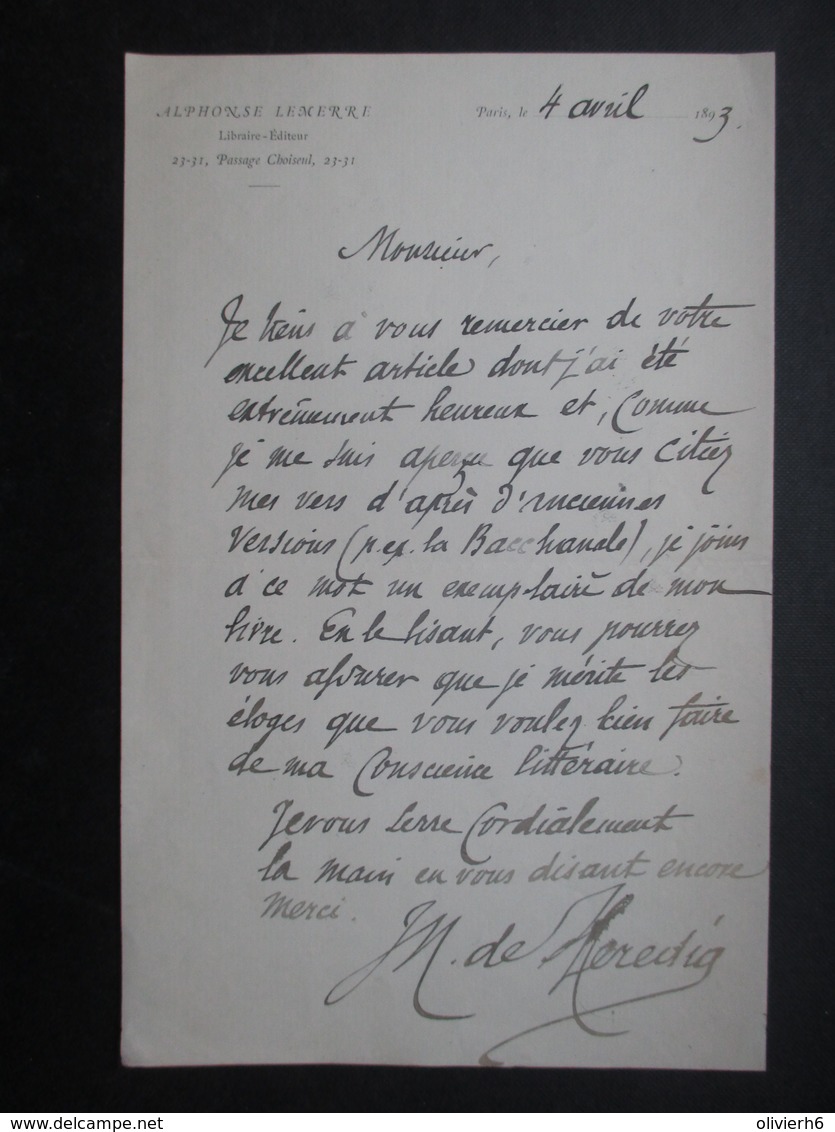 ALPHONSE LEMERRE
Libraire-Éditeur
23-31, Passage Choiseul, 23-31
Paris, le 4 avril 1893.
Monsieur,
Je tiens à vous remercier de votre
excellent article dont j'ai été
extrêmement heureux et, comme
je me suis aperçu que vous citiez
mes vers d'après d'anciennes
versions (p. ex. la Bacchanale), je joins
à ce mot un exemplaire de mon
livre. En le lisant, vous pourrez
vous assurer que je mérite les
éloges que vous voulez bien faire
de ma Conscience littéraire.
Je vous serre Cordialement
la main en vous disant encore
merci.
JM. de Heredia
delcampe.net
olivierh6